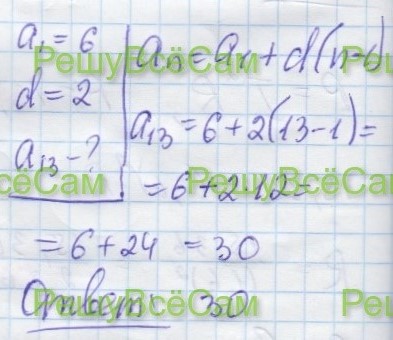 a₁ = 6
d = 2
a₁₃ - ?
aₙ = a₁ + d(n-1)
a₁₃ = 6 + 2(13-1) =
= 6 + 2·12 =
= 6 + 24 = 30
Ответ: 30
РешуВсёСам
РешуВсёСам
РешуВсёСам